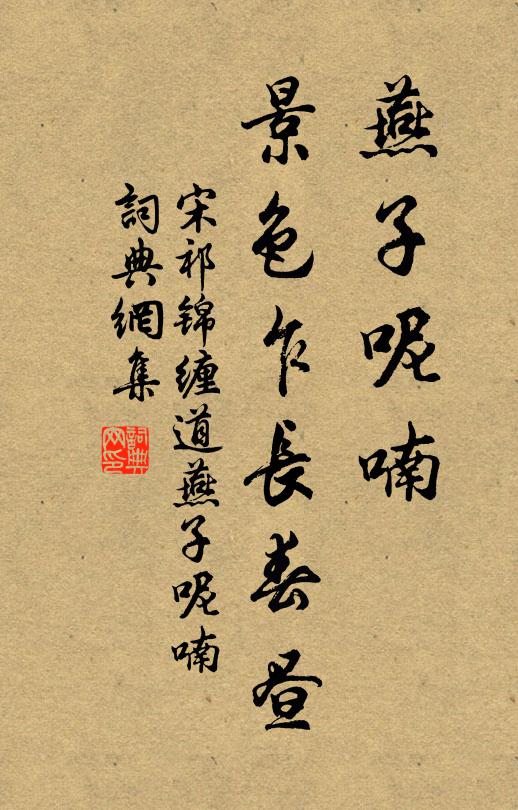 燕子呢喃
景色乍長春昼
宋祁锦缠道燕子呢喃
詞典網集
詞典网印